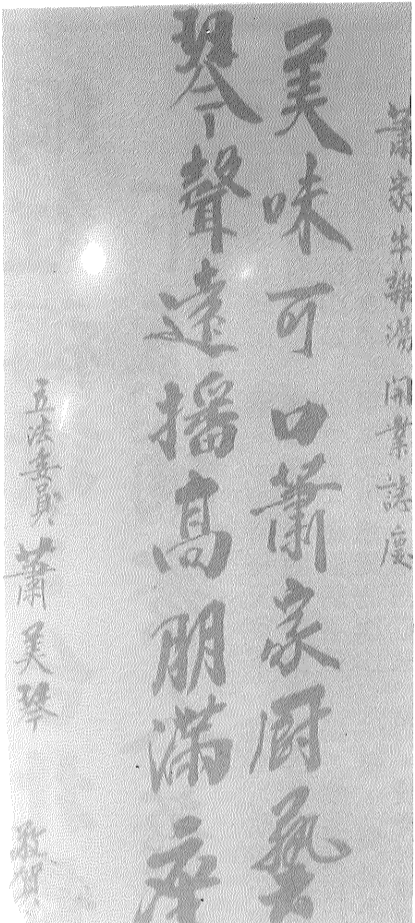 蕭家牛雜湯 開業誌慶
美味可口蕭家廚藝
琴聲遠播高朋滿座
立法委員 蕭美琴 敬賀